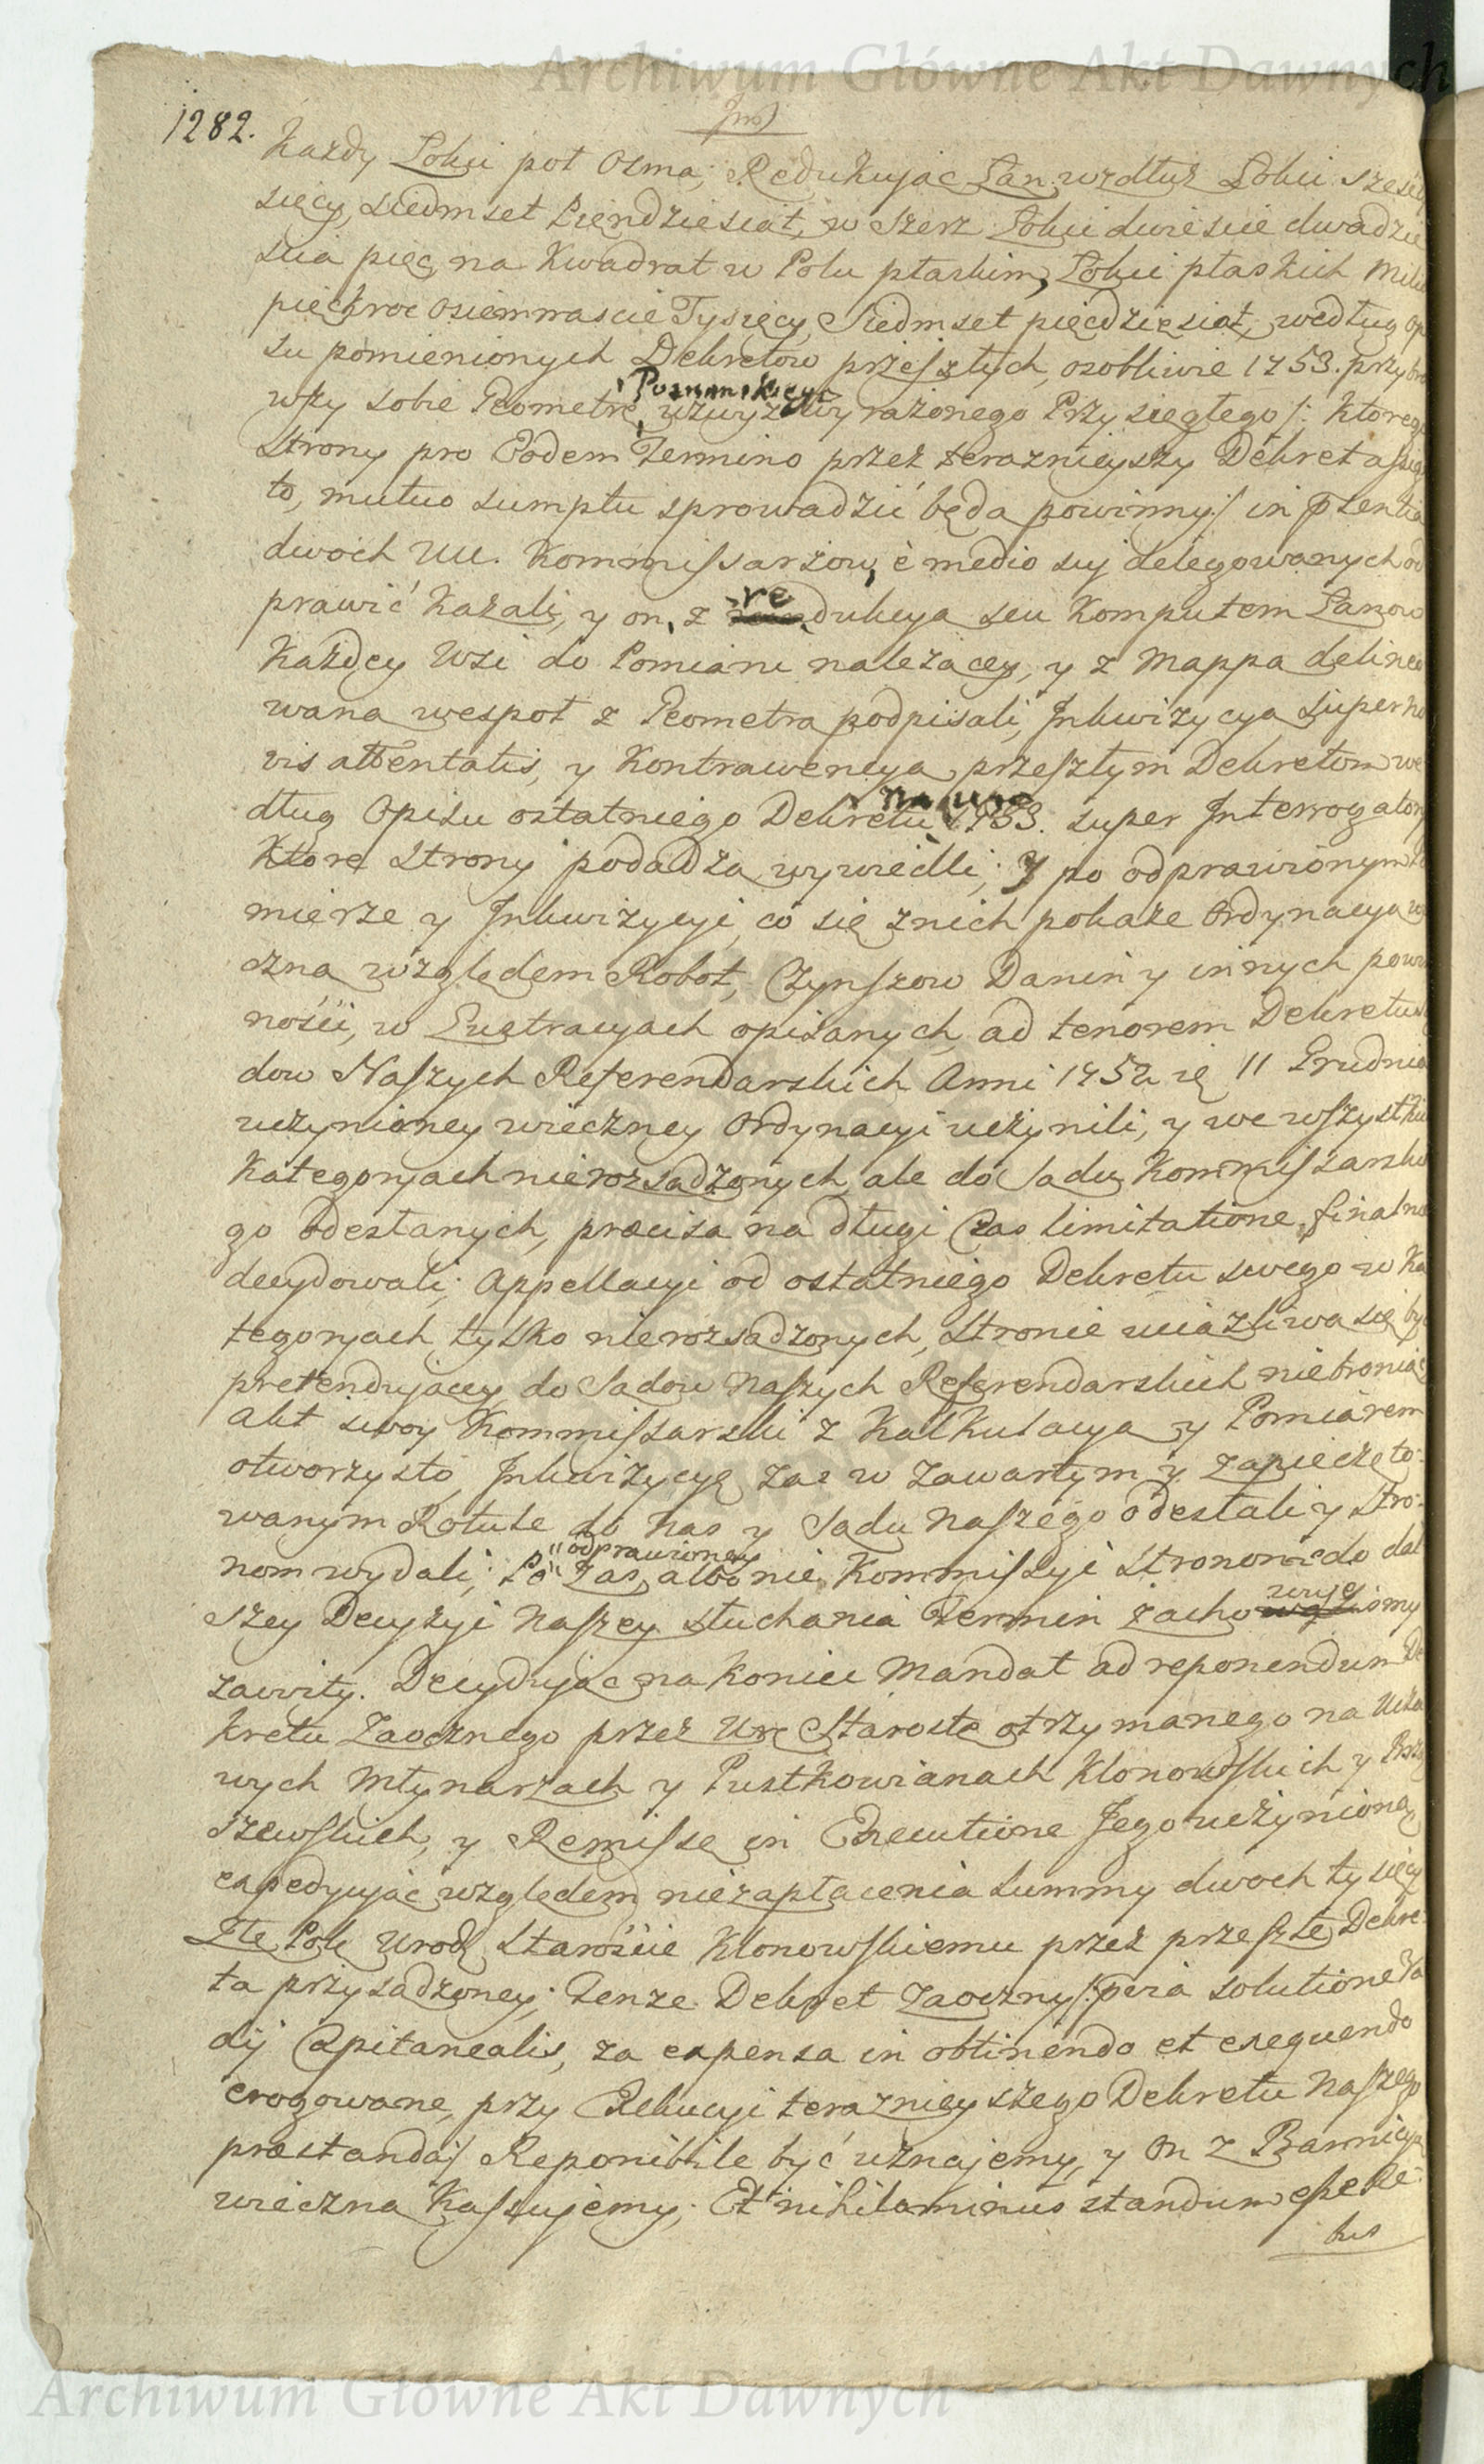 Archiwum Główne Akt Dawnych
1282.
Każdy Łokci poł osma; Redukując Łan wzdłuż Łokci sześć
sięcy, siedmset Pięndziesiąt, w szerz Łokci dwieście dwadzie
scia pięc na kwadrat w Polu płaskim, Łokci płaskich Mil
pięckroc osiemnascie Tysięcy, Siedmset pięcdziesiąt, według op
su pomienionych Dekretow przeszłych, osobliwie 1753. przybra
wszy sobie Geometrę Poznanskiego wzwyż wyrażonego Przysięgłego /: ktorego
Strony pro Eodem Termino przez terazniejszy Dekret
to, mutuo sumptu sprowadzić będą powinny/ in
dwoch Uu. Kommissarzow, è medio suj delegowanych od
prawić kazali, y on, z redukcyą seu Komputem Łanow
Każdey Wsi do Pomiani należącey, y z Mappą delineo
waną wespoł z Geometrą podpisali, Inkwizycyą super no
vis attentatis, y Kontrawencyą przeszłym Dekretom we
dług Opisu ostatniego Dekretu 1753. super Interrogatory
Ktore Strony podadzą wywiedli; Y po odprawionym
mierze y Inkwizycyi, co się z nich pokaże Ordynacyą
czną względem Robot, Czynszow Danin y innych powin
ności, w Lustracyach opisanych, ad tenorem Dekretu
dow Naszych Referendarskich Anni 1752 11 Grudnia
uczynioney wieczney Ordynacyi uczynili, y we wszystkich
Kategoryach nierozsądzonych, ale do Sądu Kommissarskie
go odesłanych, præcisa na długi Czas limitatione, finalne
decydowali; Appellacyi od ostatniego Dekretu swego w Ka
tegoryach tylko nierozsądzonych, Stronie uciązliwą się być
pretendującey do Sądow Naszych Referendarskich niebroniąc
akt swoy Kommissarski z Kalkulacyą y Pomiarem
otworzysto, Inkwizycyę zas w zawartym y zapieczęto-
wanym Rotule do Nas y Sądu Naszego odesłali y Stro-
nom wydali; Po odprawioney zas, albo nie, Kommissyi Stronom do dal
szey Decyzyi Naszey słuchania Termin zachowujemy
zawity. Decydując na koniec Mandat ad reponendum De
kretu Zaocznego przez Ur. Starostę otrzymanego na
wych Młynarzach y Pustkowianach Klonowskich y
szewskich, y Remissę in Executione Jego uczynioną
expedyując względem niezapłacenia summy dwoch tysięcy
Złt Pol: Urod. Staroście Klonowskiemu przez przeszłe Dekre-
ta przysądzoney; Tenże Dekret Zaoczny /: pera solutione
dij Capitanealis, za expensa in obtinendo et exequendo
erogowane, przy Exekucyi terazniejszego Dekretu Naszego
præstanda/ Reponibile być uznajemy, y On z Bannicyą
wieczną Kassujemy; Et nihilominus standum esse
bus
Archiwum Główne Akt Dawnych